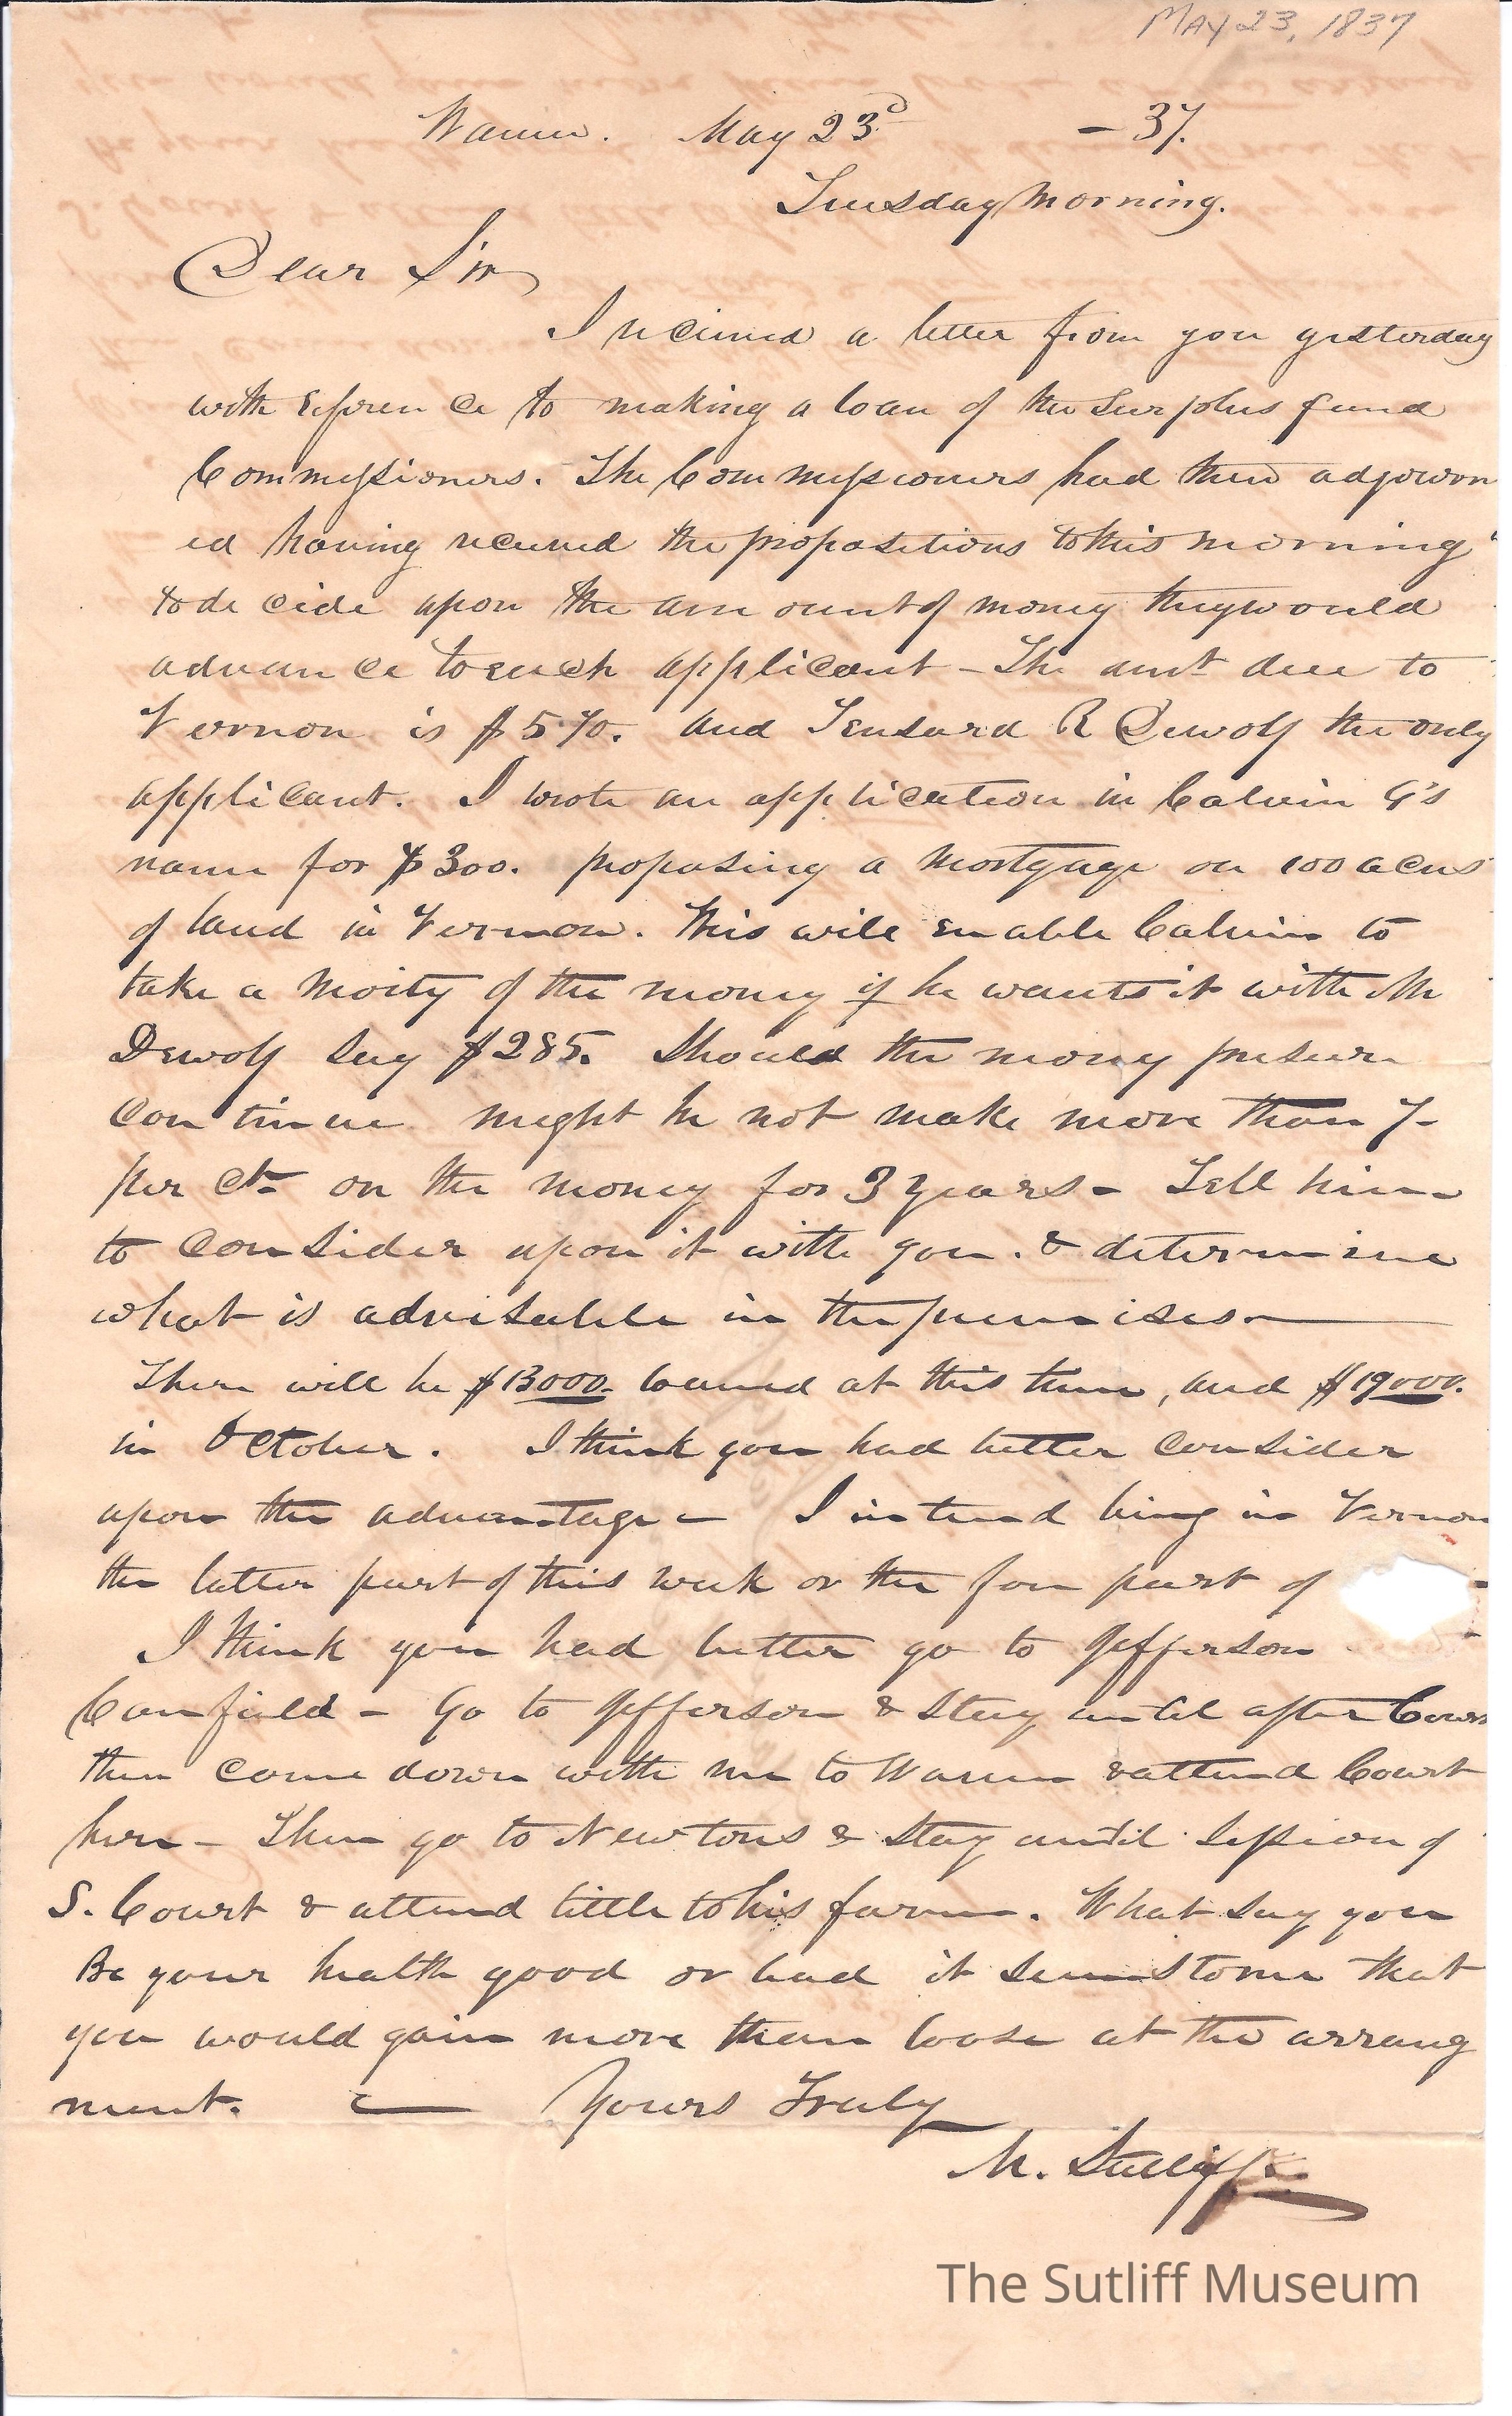 MAY 23, 1837
Warren. May 23d - 37.
Tuesday Morning.
Dear Sir
I received a letter from you yesterday
with refference to making a loan of the Surplus fund
Commissioners. The Commissioners had then adjourn
ed having received the propositions to this morning
to decide upon the amount of money they would
advance to each applicant - The amt due to
Vernon is $570. and R Dewolf the only
applicant. I wrote an application in Calvin G's
name for $300. proposing a Mortgage on 100 acres
of land in Vernon. This will enable Calvin to
take a Moity of the money if he wants it with Mr
Dewolf say $285. Should the money presure
continue might he not make more than 7-
per ct on the money for 3 years - Tell him
to consider upon it with you. & determine
what is adviseable in the premises -
There will be $13000. loaned at this time, and $19000.
in October. I think you had better consider
upon the advantage - I intend being in Vernon
the latter part of this week or the fore part of
I think you had better go to Jefferson
Canfield - Go to Jefferson & stay until after Court
then come down with me to Warren & attend Court
here - Then go to Newtons & stay until Session of
S. Court & attend little to his farm. What say you
Be your health good or bad it seems to me that
you would gain more than loose at the arrang
ment. Yours Truly
M. Sutliff
The Sutliff Museum